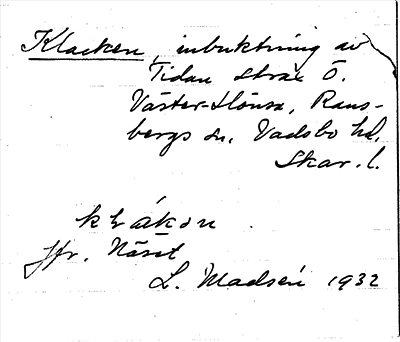 Klacken, inbuktning av
Tidan strax Ö.
Väster-Hönsa, Rans-
bergs sn, Vadsbo hd,
Skar. l.
klákọn
Jfr. Näset
L. Madsén 1932